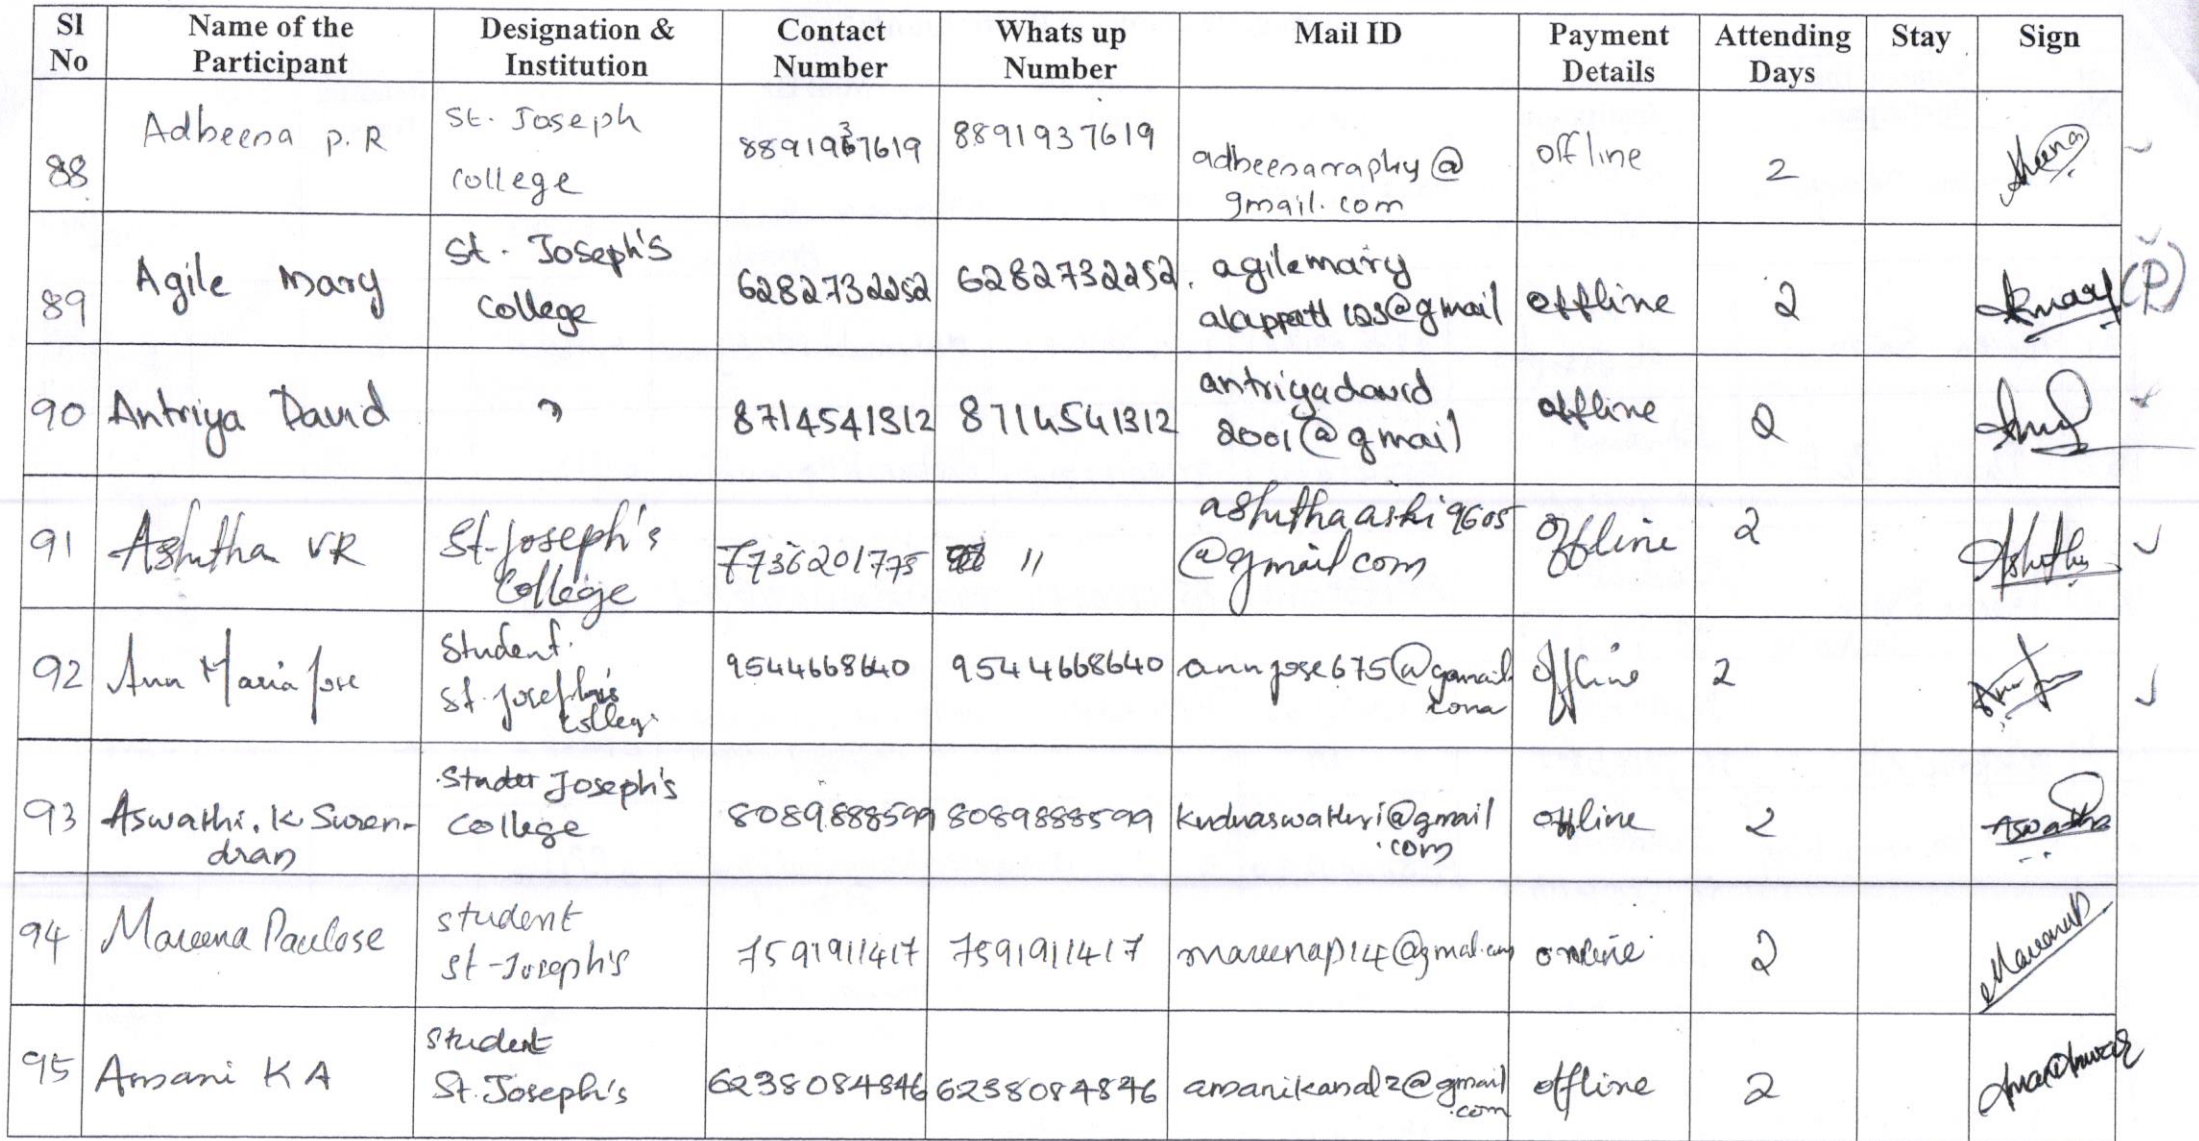 Sl No Name of the Participant Designation & Institution Contact Number Whats up Number Mail ID Payment Details Attending Days Stay Sign
88 Adbeena P.R St. Joseph college 8891937619 8891937619 adbeenarraphy@gmail.com offline 2
89 Agile Mary St. Joseph's College 6282732252 6282732252 agilemary 123@gmail offline 2 (P)
90 Antriya David " 8714541312 8714541312 antriyadavid2001@gmail offline 2
91 Ashitha VR St. Joseph's College 7736201775 " ashithaashi9605@gmail.com offline 2 Ashitha
92 Ann Maria Jose Student St. Joseph's College 9544668640 9544668640 annjose675@gamail.com offline 2
93 Aswathi. K Suren-dran Joseph's College 8089888599 8089888599 @gmail.com offline 2 Aswathi
94 Mareena Paulose student St-Joseph's 7591911417 7591911417 mareenap14@gmal.com online 2 MareenaP
95 Amani K A Student St. Joseph's 6238084846 6238084846 offline 2